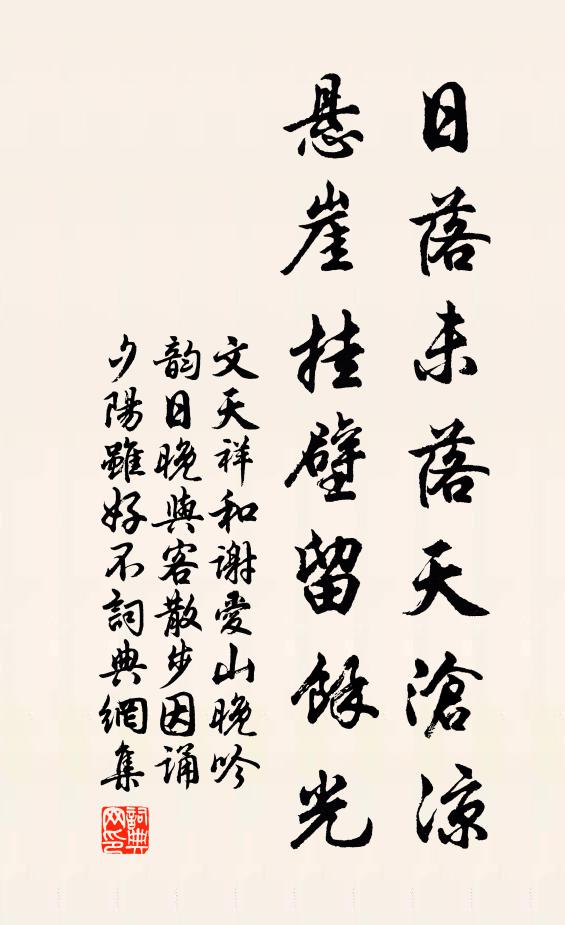 日落未落天滄涼
悬崖挂壁留餘光
文天祥和谢爱山晚吟
韵日晚與客散步因诵
夕陽雖好不詞典網集
詞典网印